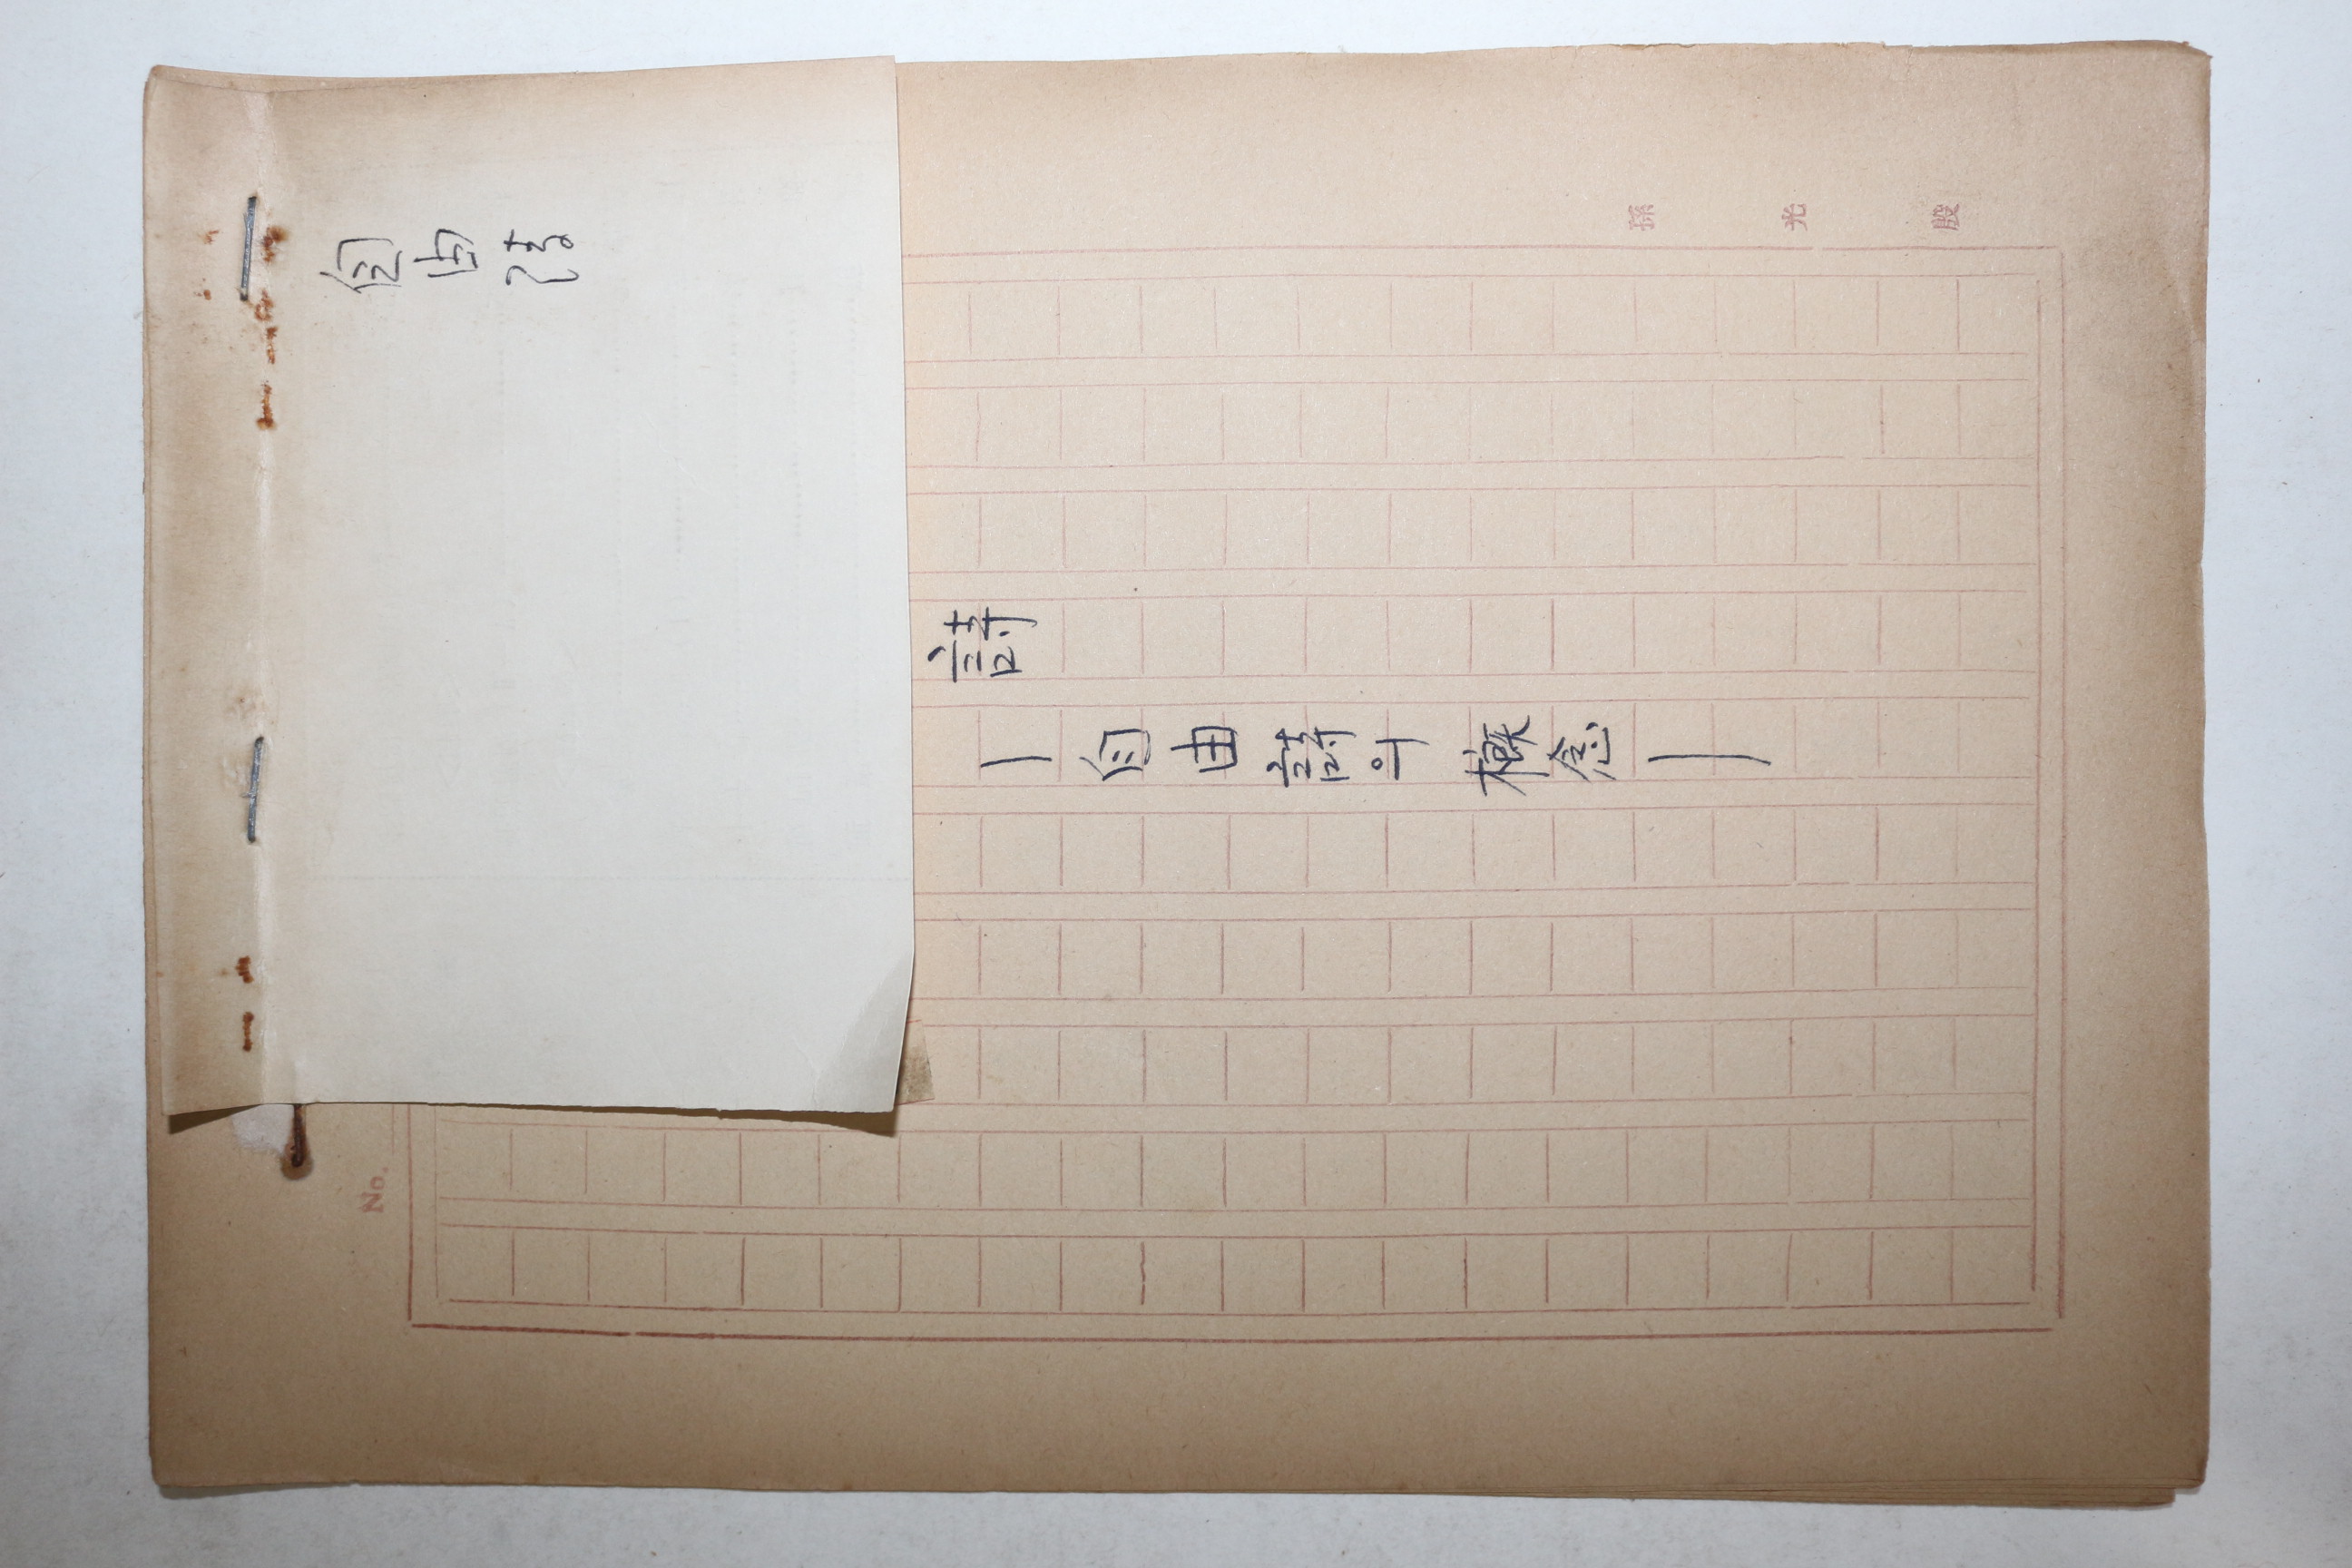 孫光殷
自由詩
詩
— 自由詩의 概念 —
No.